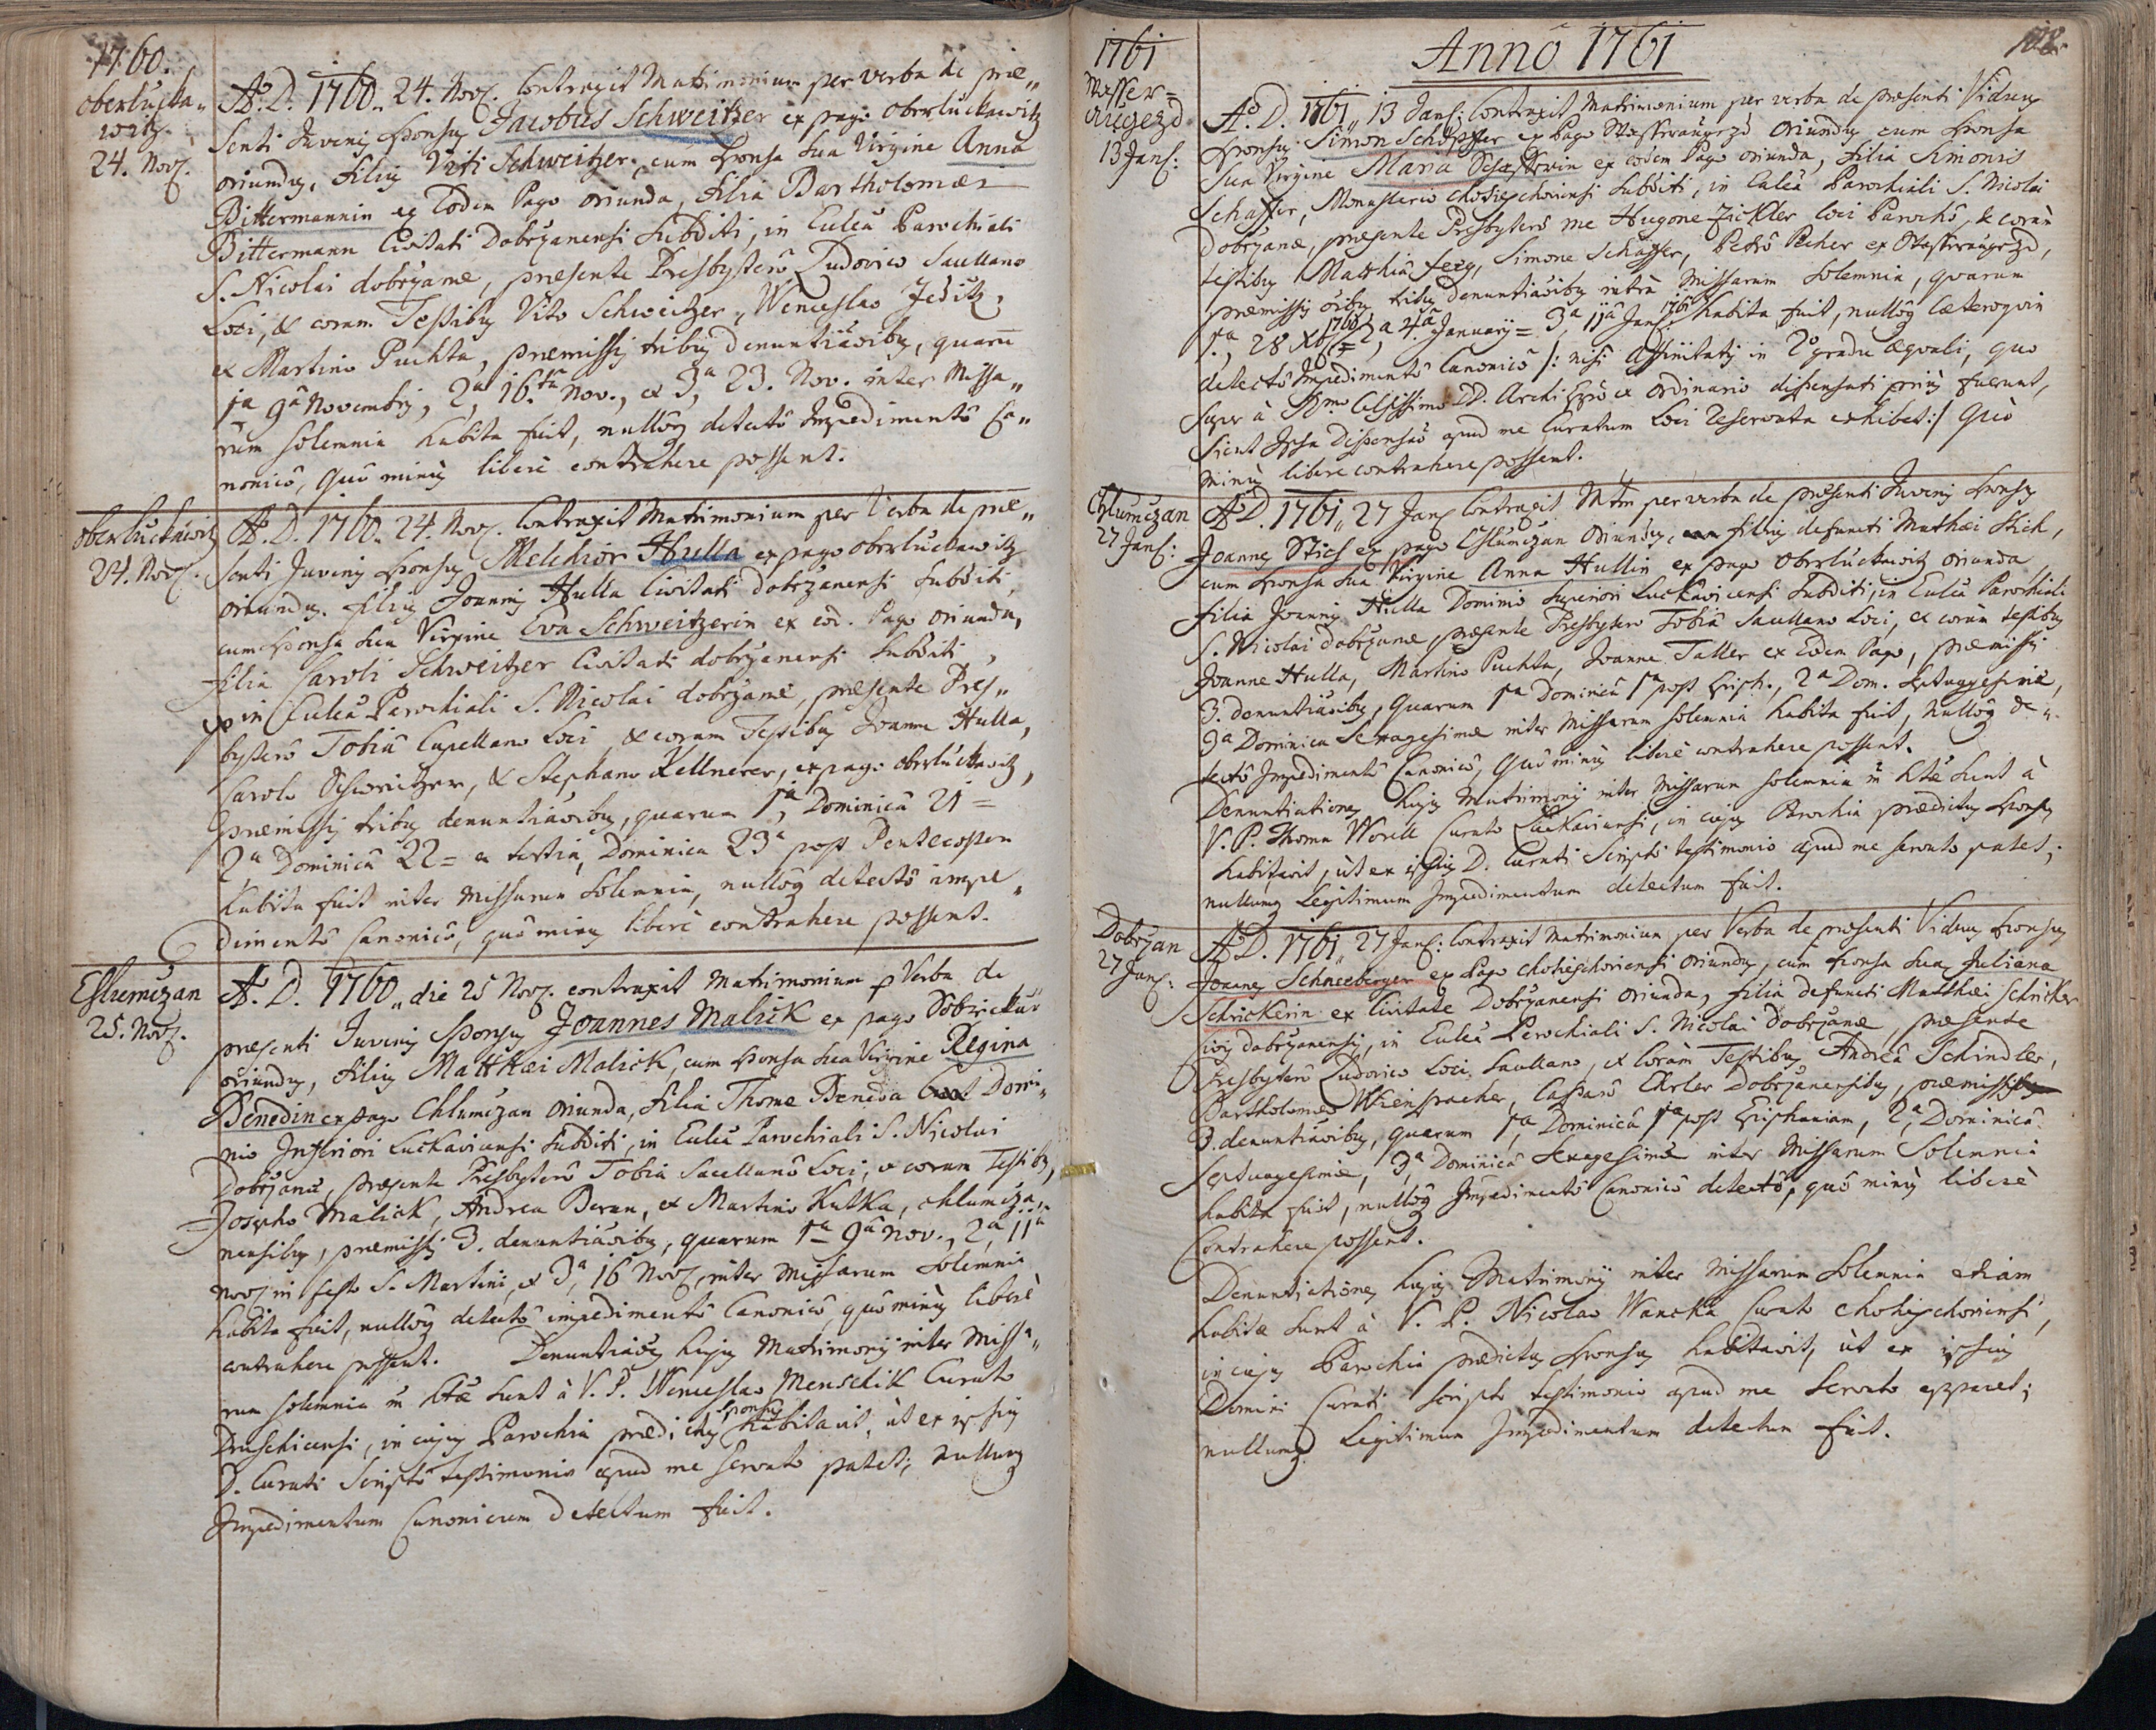 1760.
Oberlucka„
witz
24. Nov.
A.D. 1760. 24. Nov. Contraxit Matrimonium per verba de præ„
senti Juvenis Sponsus Jacobus Schweitzer ex pago Oberluckawitz
oriundus, filius Viti Schweitzer, cum Sponsa sua Virgine Anna
Bittermannin ex eodem Pago oriunda, filia Bartholomæi
Bittermann Civitati Dobrzanensi subditi, in Ecclia Parochiali
S. Nicolai dobrzanæ, præsente Presbyterô Ludovico Sacellano
Loci, & coram Testibus Vito Schweitzer, Wenceslao
et Martino Puchta, præmissis tribus denuntiaoibus, quarū
1ma 9a Novembris, 2a, 16ta Nov., et 3a, 23. Nov. inter Missa„
rum solemnia habita fuit, nullôq detectô Impedimentô Ca„
nonicô, quô minus liberè contrahere possent.
Oberluckawitz
24. Nov.
A.D. 1760. 24. Nov. Contraxit Matrimonium per Verba de præ„
senti Juvenis Sponsus Melchior Hulla ex pago Oberluckawitz
oriundus. filius Joannis Hulla Civitati dobrzanensi subditi,
cum Sponsa sua Virgine Eva Schweitzerin ex eod. Pago oriunda,
filia Caroli Schweitzer Civitati dobrzanensi subditi,
in Ecclia Parochiali S. Nicolai dobrzanæ, præsente Pres„
byterô Tobiâ Capellano Loci, & coram Testibus Joanne Hulla,
Carolo Schweitzer, & Stephano Kellnerer, ex pago Oberluckawitz,
præmissis tribus denuntiaoibus, quarum 1a, Dominicâ 21=
2a Dominicâ 22= et tertia, Dominica 23a post Pentecosten
habita fuit inter Missarum solemnia, nullôq detectô impe„
dimentô Canonicô, quô minus liberè contrahere possent.
Chlumczan
25. Nov.
A.D. 1760„ die 25 Nov. contraxit Matrimonium p Verba de
præsenti Juvenis Sponsus Joannes Malick ex pago Dobrickur
oriundus, filius Matthæi Malick, cum Sponsa sua Virgine Regina
Benedin ex pago Chlumczan oriunda, filia Thomæ Beneda Domi„
nio Inferiori Luckavicensi subditi, in Ecclia Parochiali S. Nicolai
Dobrzanæ, præsente Presbyterô Tobia Sacellanô Loci, & coram Testibus,
Josepho Malick, Andrea Beran, et Martino Kutka, chlumcza„
nensibus, præmissis 3. denuntiaoibus, quarum 1a 9a Nov., 2a, 11a
Nov. in festo S. Martini, et 3a, 16 Nov., inter Missarum solemnia
habita fuit, nullôq detectô impedimentô Canonicô, quô minùs liberè
contrahere possent. Denuntiaões hujus Matrimonij inter Missa„
rum solemnia sunt à V. P. Wenceslao Menschik Curato
Druschicensi, in cujus Parochia prædictus sponsus habitavit, ùt ex ipsius
D. Curati Scriptô testimonio apud me servato patet; nullumq
Impedimentum Canonicum detectum fuit.
1761
Wasser=
augezd
13 Jan:
Annô 1761
A.D. 1761„ 13 Jan: Contraxit Matrimonium per verba de præsenti Viduus
Sponsus Simon Schaffer ex Pago Wasseraugezd oriundus cum Sponsa
sua Virgine Maria Schafferin ex eodem Pago oriunda, filia Simonis
Schaffer, Monasterio Chotieschoviensi subditi, in Ecclia Parochiali S. Nicolai
Dobrzanæ, præsente Presbyterô me Hugone Fickler loci Parochô, & coram
testibus Matthia, Simone Schaffer, Petrô Pecher ex Wasseraugezd,
præmissis tribus denuntiaoibus intra Missarum solemnia, quarum
1a, 28 Xbr 1760= 2a 4a January= 3a 11a Jan: 1761 habita fuit, nullôq cæteroquin
detectô Impedimentô Canonicô /: nisi Affinitatis in 2o gradu æquali, quo
super à Rmo Celsissimo DD. Archi Eppo et Ordinario dispensati prius fuerunt,
sicut Ipsa Dispensaō apud me Curatum Loci reservata exhibet:/ quô
minùs libere contrahere possent.
Chlumczan
27 Jan:
A.D. 1761„ 27 Jan: Contraxit Mtrm per verba de præsenti Juvenis Sponsus
Joannes Stich ex pago Chlumczan oriundus, filius defuncti Mathæi Stich,
cum Sponsa sua Virgine Anna Hullin ex pago Oberluckawitz oriunda
filia Joannis Hulla Dominio Superiori Luckavicensi subditi, in Ecclia Parochiali
S. Nicolai Dobrzanæ præsente Presbytero Tobiâ Sacellano Loci, et coràm testibus
Joanne Hulla, Martino Puchta, Joanne Taller ex Eodem Pago, præmissis
3. denuntiaoibus, quarum 1a Dominicâ 1a post Epiph., 2a Dom. Septuagesimæ,
3a Dominica Sexagesimæ inter Missarum solemnia habita fuit, nullôq de„
tectô Impedimentô Canonicô, quô minùs liberè contrahere possent.
Denuntiationes hujus Matrimonij inter Missarum solemnia sunt à
V. P. Thoma Worell Curato Luckaviensi, in cujus Parochia prædictus Sponsus
habitavit, ùt ex ipsius D. Curati Scriptô testimonio apud me servato patet;
nullumq Legitimum Impedimentum detectum fuit.
Dobrzan
27 Jan:
A.D. 1761„ 27 Jan: Contraxit Matrimonium per Verba de præsenti Viduus Sponsus
Joannes Schneeberger ex Pago Chotieschoviensi oriundus, cum Sponsa sua Juliana
Schrickerin ex Civitate Dobrzanensi oriunda, filia defuncti Matthæi Schricker
civis dobrzanensis, in Ecclia Parochiali S. Nicolai Dobrzanæ, præsente
Presbyterô Ludovico Loci Sacellano, et Coràm Testibus Andreâ Schindler,
Bartholomæo Wienspacher, Casparô Ehrler Dobrzanensibus, præmissis
3. denuntiaoibus, quarum 1a, Dominicâ 1a post Epiphaniam, 2a, Dominicâ
Septuagesimæ, 3a Dominicâ Sexagesimæ inter Missarum Solemnia
habita fuit, nullôq Impedimentô Canonicô detectô, quô minùs liberè
Contrahere possent.
Denuntiationes hujus Matrimonij inter Missarum Solemnia etiam
habitæ sunt à V. P. Nicolao Wancka Curato Chotieschoviensi,
in cujus Parochia prædictus Sponsus habitavit, ùt ex ipsius
Domini Curati scripto testimonio apud me servato apparet;
nullumq Legitimum Impedimentum detectum fuit.